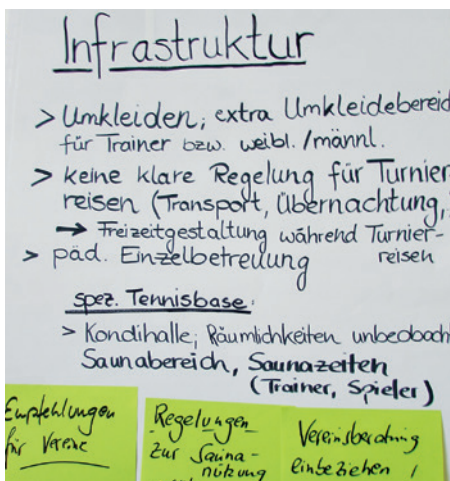 Infrastruktur
> Umkleiden; extra Umkleidebereic
für Trainer bzw. weibl./männl.
> keine klare Regelung für Turnier-
reisen (Transport, Übernachtung,
→ Freizeitgestaltung während Turnier-
reisen
> päd. Einzelbetreuung
spez. Tennisbase:
> Kondihalle; Räumlichkeiten unbeobacht
Saunabereich, Saunazeiten
(Trainer, Spieler)
Empfehlungen
für Vereine
Regelungen
zur Sauna-
nützung
Vereinsberatung
einbeziehen